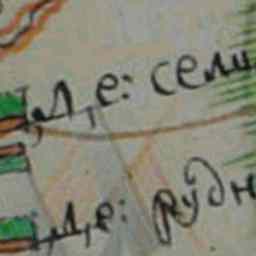 , Д, е: сели
, Д, е: рудн